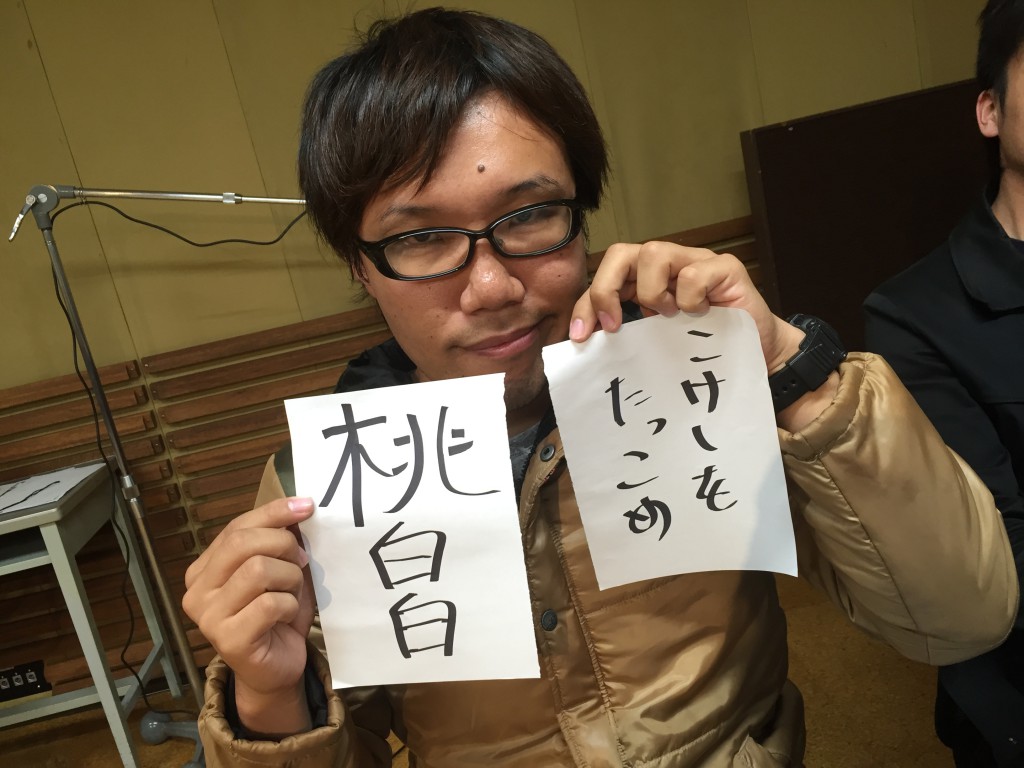 桃白白
こけしを
たっこめ